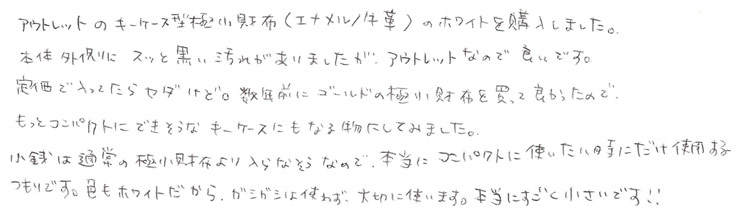 アウトレットのキーケース型極小財布(エナメル/牛革)のホワイトを購入しました。
本体外側にスッと黒い汚れがありましたが、アウトレットなので良いです。
定価で入ってたらヤダけど。数年前にゴールドの極小財布を買って良かったので、
もっとコンパクトにできそうなキーケースにもなる物にしてみました。
小銭は通常の極小財布より入らなそうなので、本当にコンパクトに使いたい時にだけ使用する
つもりです。色もホワイトだから、ガシガシは使わず、大切に使います。本当にすごく小さいです!!